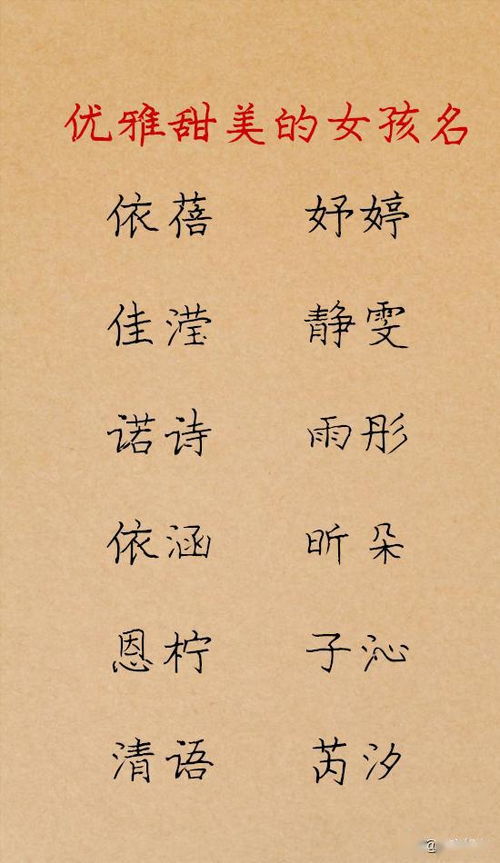 优雅甜美的女孩名
依蓓 妤婷
佳滢 静雯
诺诗 雨彤
依涵 昕朵
恩柠 子沁
清语 芮汐